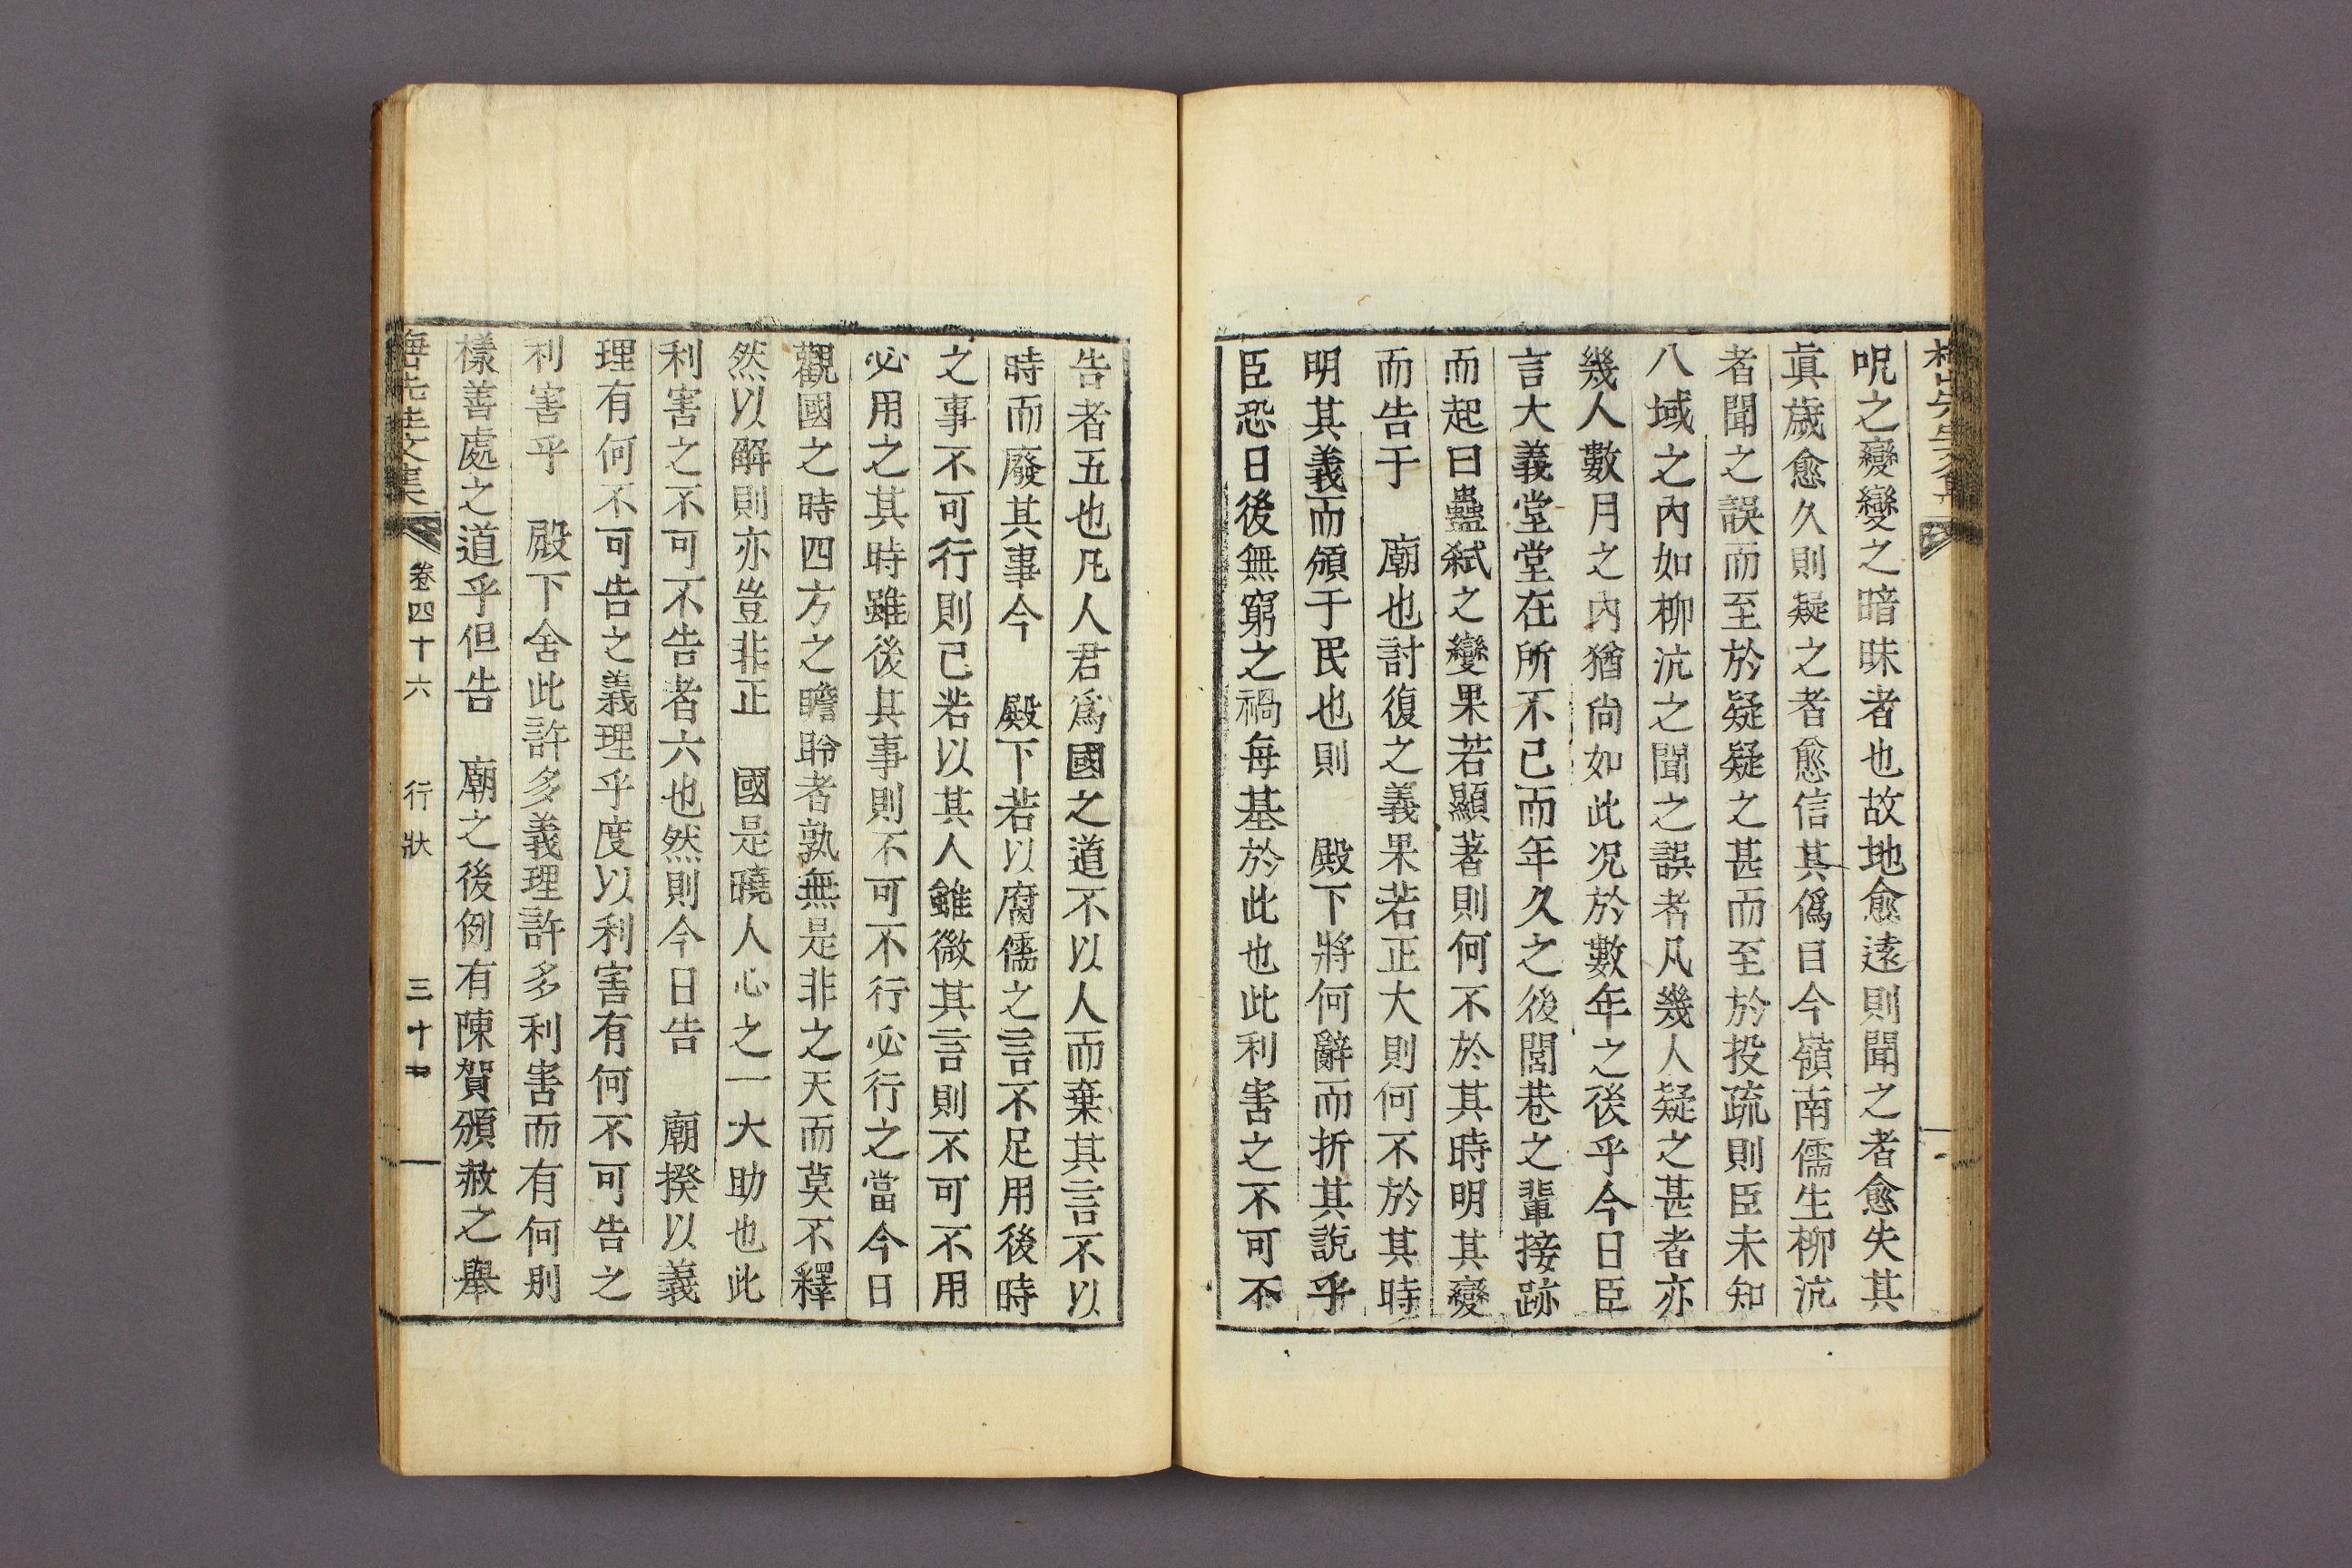 呪之變變之暗昧者也故地愈遠則聞之者愈失其
眞歲愈久則疑之者愈信其僞日今嶺南儒生柳沆
者聞之誤而至於疑疑之甚而至於投疏則臣未知
八域之內如柳沆之聞之誤者凡幾人疑之甚者亦
幾人數月之內猶尙如此况於數年之後乎今日臣
言大義堂堂在所不已而年久之後閭巷之輩接跡
而起曰蠱弑之變果若顯著則何不於其時明其變
而告于　廟也討復之義果若正大則何不於其時
明其義而頒于民也則　殿下將何辭而折其說乎
臣恐日後無窮之禍每基於此也此利害之不可不
告者五也凡人君爲國之道不以人而棄其言不以
時而廢其事今　殿下若以腐儒之言不足用後時
之事不可行則已若以其人雖微其言則不可不用
必用之其時雖後其事則不可不行必行之當今日
觀國之時四方之瞻聆者孰無是非之天而莫不釋
然以解則亦豈非正　國是曉人心之一大助也此
利害之不可不告者六也然則今日告　廟揆以義
理有何不可告之義理乎度以利害有何不可告之
利害乎　殿下舍此許多義理許多利害而有何別
樣善處之道乎但告　廟之後例有陳賀頒赦之擧
先生文集　卷四十六　行狀　三十